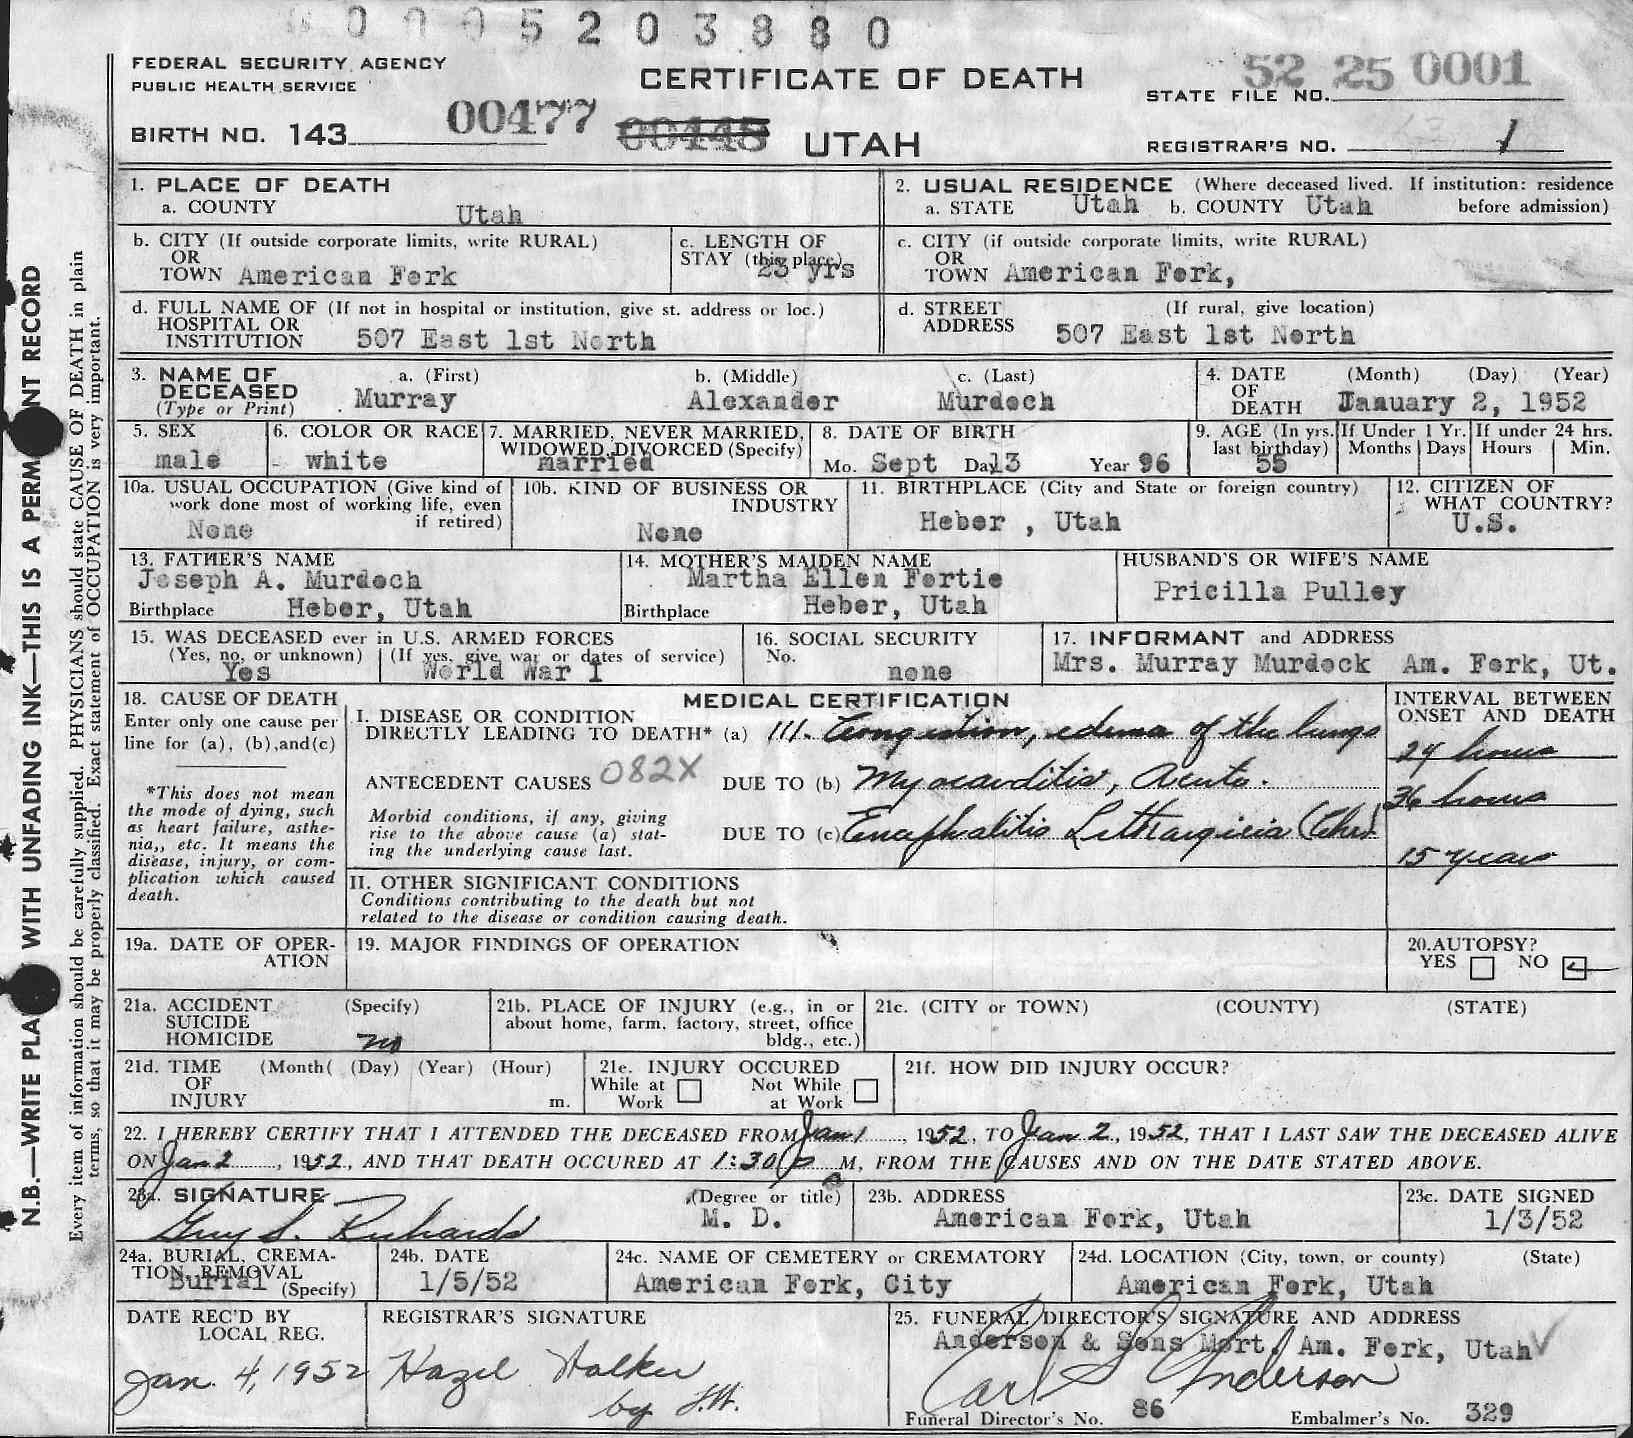 0 0 0 5 2 0 3 8 8 0
FEDERAL SECURITY AGENCY
PUBLIC HEALTH SERVICE
CERTIFICATE OF DEATH
52 25 0001
STATE FILE NO.
BIRTH NO. 143
00477 00448 UTAH
REGISTRAR'S NO. 1
1. PLACE OF DEATH
a. COUNTY Utah
2. USUAL RESIDENCE (Where deceased lived. If institution: residence before admission)
a. STATE Utah b. COUNTY Utah
b. CITY (If outside corporate limits, write RURAL)
OR
TOWN American Fork
c. LENGTH OF
STAY (this place) 23 yrs
c. CITY (if outside corporate limits, write RURAL)
OR
TOWN American Fork,
d. FULL NAME OF (If not in hospital or institution, give st. address or loc.)
HOSPITAL OR
INSTITUTION 507 East 1st North
d. STREET (If rural, give location)
ADDRESS 507 East 1st North
3. NAME OF a. (First) b. (Middle) c. (Last)
DECEASED Murray Alexander Murdoch
(Type or Print)
4. DATE (Month) (Day) (Year)
OF
DEATH January 2, 1952
5. SEX
male
6. COLOR OR RACE
white
7. MARRIED, NEVER MARRIED,
WIDOWED, DIVORCED (Specify)
married
8. DATE OF BIRTH
Mo. Sept Da. 13 Year 96
9. AGE (In yrs.
last birthday)
55
If Under 1 Yr.
Months Days
If under 24 hrs.
Hours Min.
10a. USUAL OCCUPATION (Give kind of
work done most of working life, even
if retired)
None
10b. KIND OF BUSINESS OR
INDUSTRY
None
11. BIRTHPLACE (City and State or foreign country)
Heber , Utah
12. CITIZEN OF
WHAT COUNTRY?
U.S.
13. FATHER'S NAME
Joseph A. Murdoch
Birthplace Heber, Utah
14. MOTHER'S MAIDEN NAME
Martha Ellen Fortie
Birthplace Heber, Utah
HUSBAND'S OR WIFE'S NAME
Pricilla Pulley
15. WAS DECEASED ever in U.S. ARMED FORCES
(Yes, no, or unknown) (If yes, give war or dates of service)
Yes World War I
16. SOCIAL SECURITY
No.
none
17. INFORMANT and ADDRESS
Mrs. Murray Murdock Am. Fork, Ut.
18. CAUSE OF DEATH
Enter only one cause per
line for (a), (b), and (c)
*This does not mean
the mode of dying, such
as heart failure, asthe-
nia,, etc. It means the
disease, injury, or com-
plication which caused
death.
MEDICAL CERTIFICATION
I. DISEASE OR CONDITION
DIRECTLY LEADING TO DEATH* (a) 111. Congestion, edema of the lungs
ANTECEDENT CAUSES 082X DUE TO (b) Myocarditis, Acute.
Morbid conditions, if any, giving
rise to the above cause (a) stat-
ing the underlying cause last.
DUE TO (c) Encephalitis Lethargicia (Chr)
INTERVAL BETWEEN
ONSET AND DEATH
24 hours
36 hours
15 years
II. OTHER SIGNIFICANT CONDITIONS
Conditions contributing to the death but not
related to the disease or condition causing death.
19a. DATE OF OPER-
ATION
19. MAJOR FINDINGS OF OPERATION
20. AUTOPSY?
YES NO
21a. ACCIDENT (Specify)
SUICIDE
HOMICIDE no
21b. PLACE OF INJURY (e.g., in or
about home, farm, factory, street, office
bldg., etc.)
21c. (CITY or TOWN) (COUNTY) (STATE)
21d. TIME (Month( (Day) (Year) (Hour)
OF
INJURY m.
21e. INJURY OCCURED
While at Work Not While at Work
21f. HOW DID INJURY OCCUR?
22. I HEREBY CERTIFY THAT I ATTENDED THE DECEASED FROM Jan 1, 1952, TO Jan 2, 1952, THAT I LAST SAW THE DECEASED ALIVE
ON Jan 2, 1952, AND THAT DEATH OCCURED AT 1:30 p M, FROM THE CAUSES AND ON THE DATE STATED ABOVE.
23a. SIGNATURE (Degree or title)
Guy S. Richards M. D.
23b. ADDRESS
American Fork, Utah
23c. DATE SIGNED
1/3/52
24a. BURIAL, CREMA-
TION, REMOVAL
Burial (Specify)
24b. DATE
1/5/52
24c. NAME OF CEMETERY or CREMATORY
American Fork, City
24d. LOCATION (City, town, or county) (State)
American Fork, Utah
DATE REC'D BY
LOCAL REG.
Jan. 4, 1952
REGISTRAR'S SIGNATURE
Hazel Walker
by
25. FUNERAL DIRECTOR'S SIGNATURE AND ADDRESS
Anderson & Sons Mort. Am. Fork, Utah
Carl S Anderson
Funeral Director's No. 86 Embalmer's No. 329
N.B.—WRITE PLA WITH UNFADING INK—THIS IS A PERM NT RECORD
Every item of information should be carefully supplied. PHYSICIANS should state CAUSE OF DEATH in plain
terms, so that it may be properly classified. Exact statement of OCCUPATION is very important.